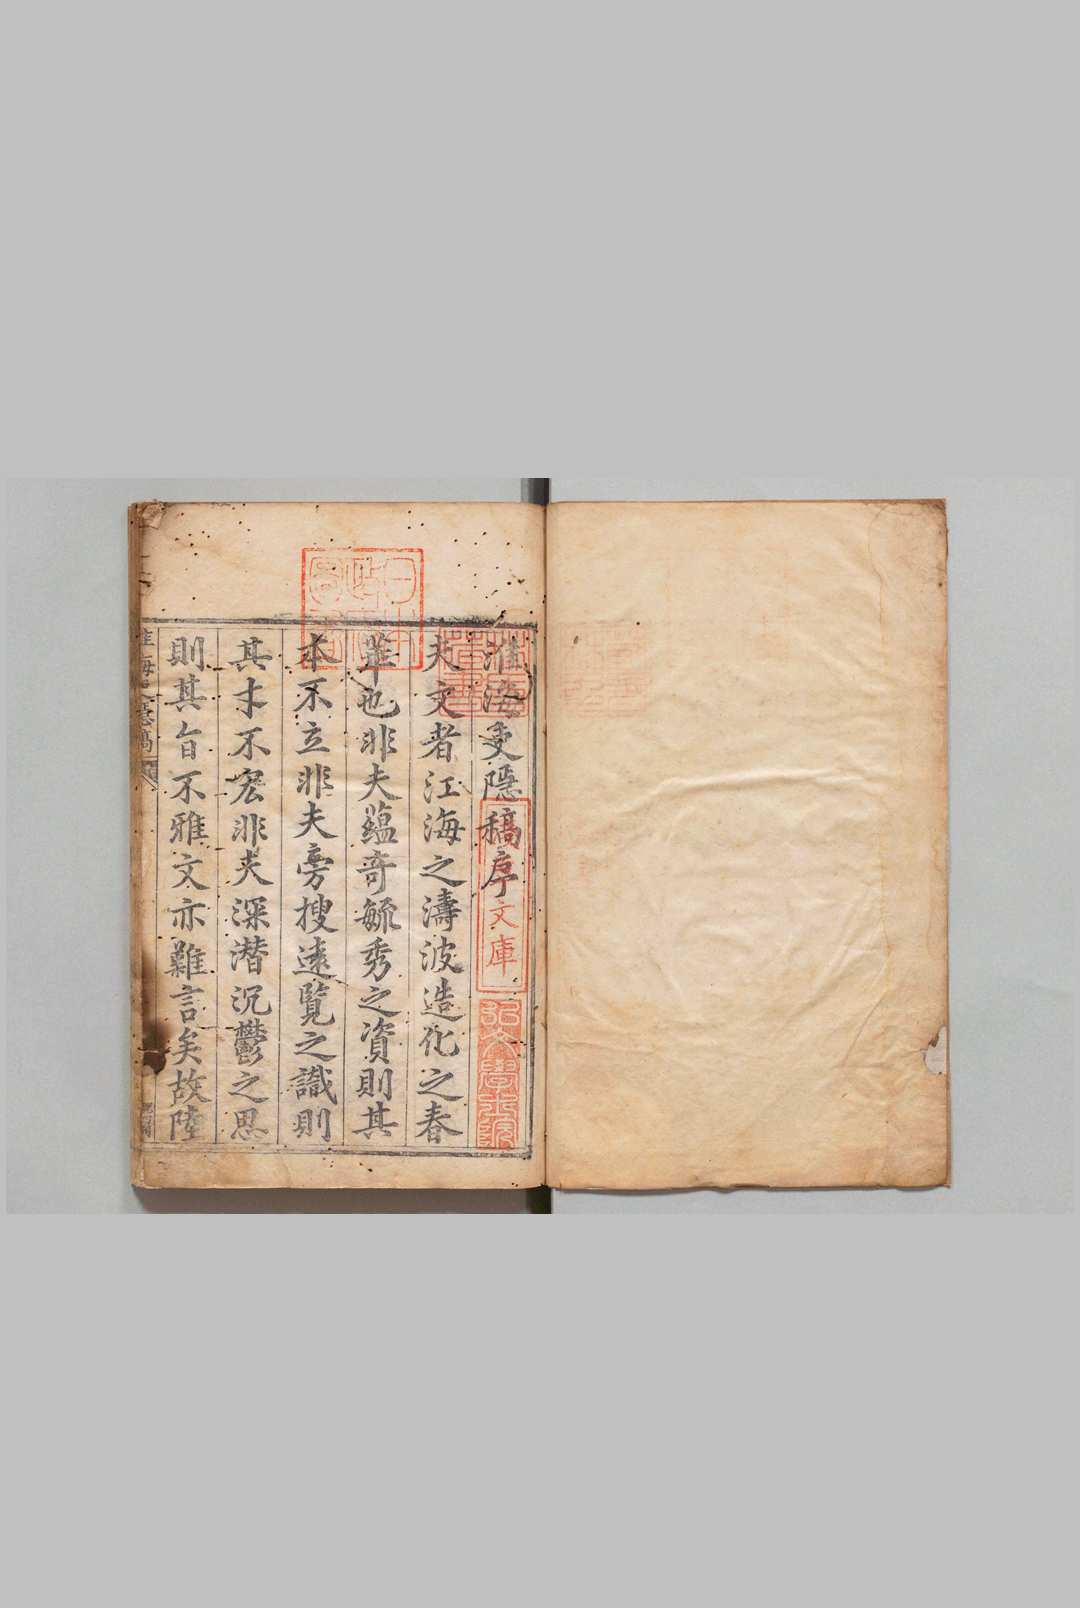 淮海隱稿序
夫文者江海之濤波造化之春
華也非夫蘊奇毓秀之資則其
本不立非夫旁搜遠覽之識則
其才不宏非夫深潛沉鬱之思
則其旨不雅文亦難言矣故陸
日本政府圖書
文庫
弘文學士院